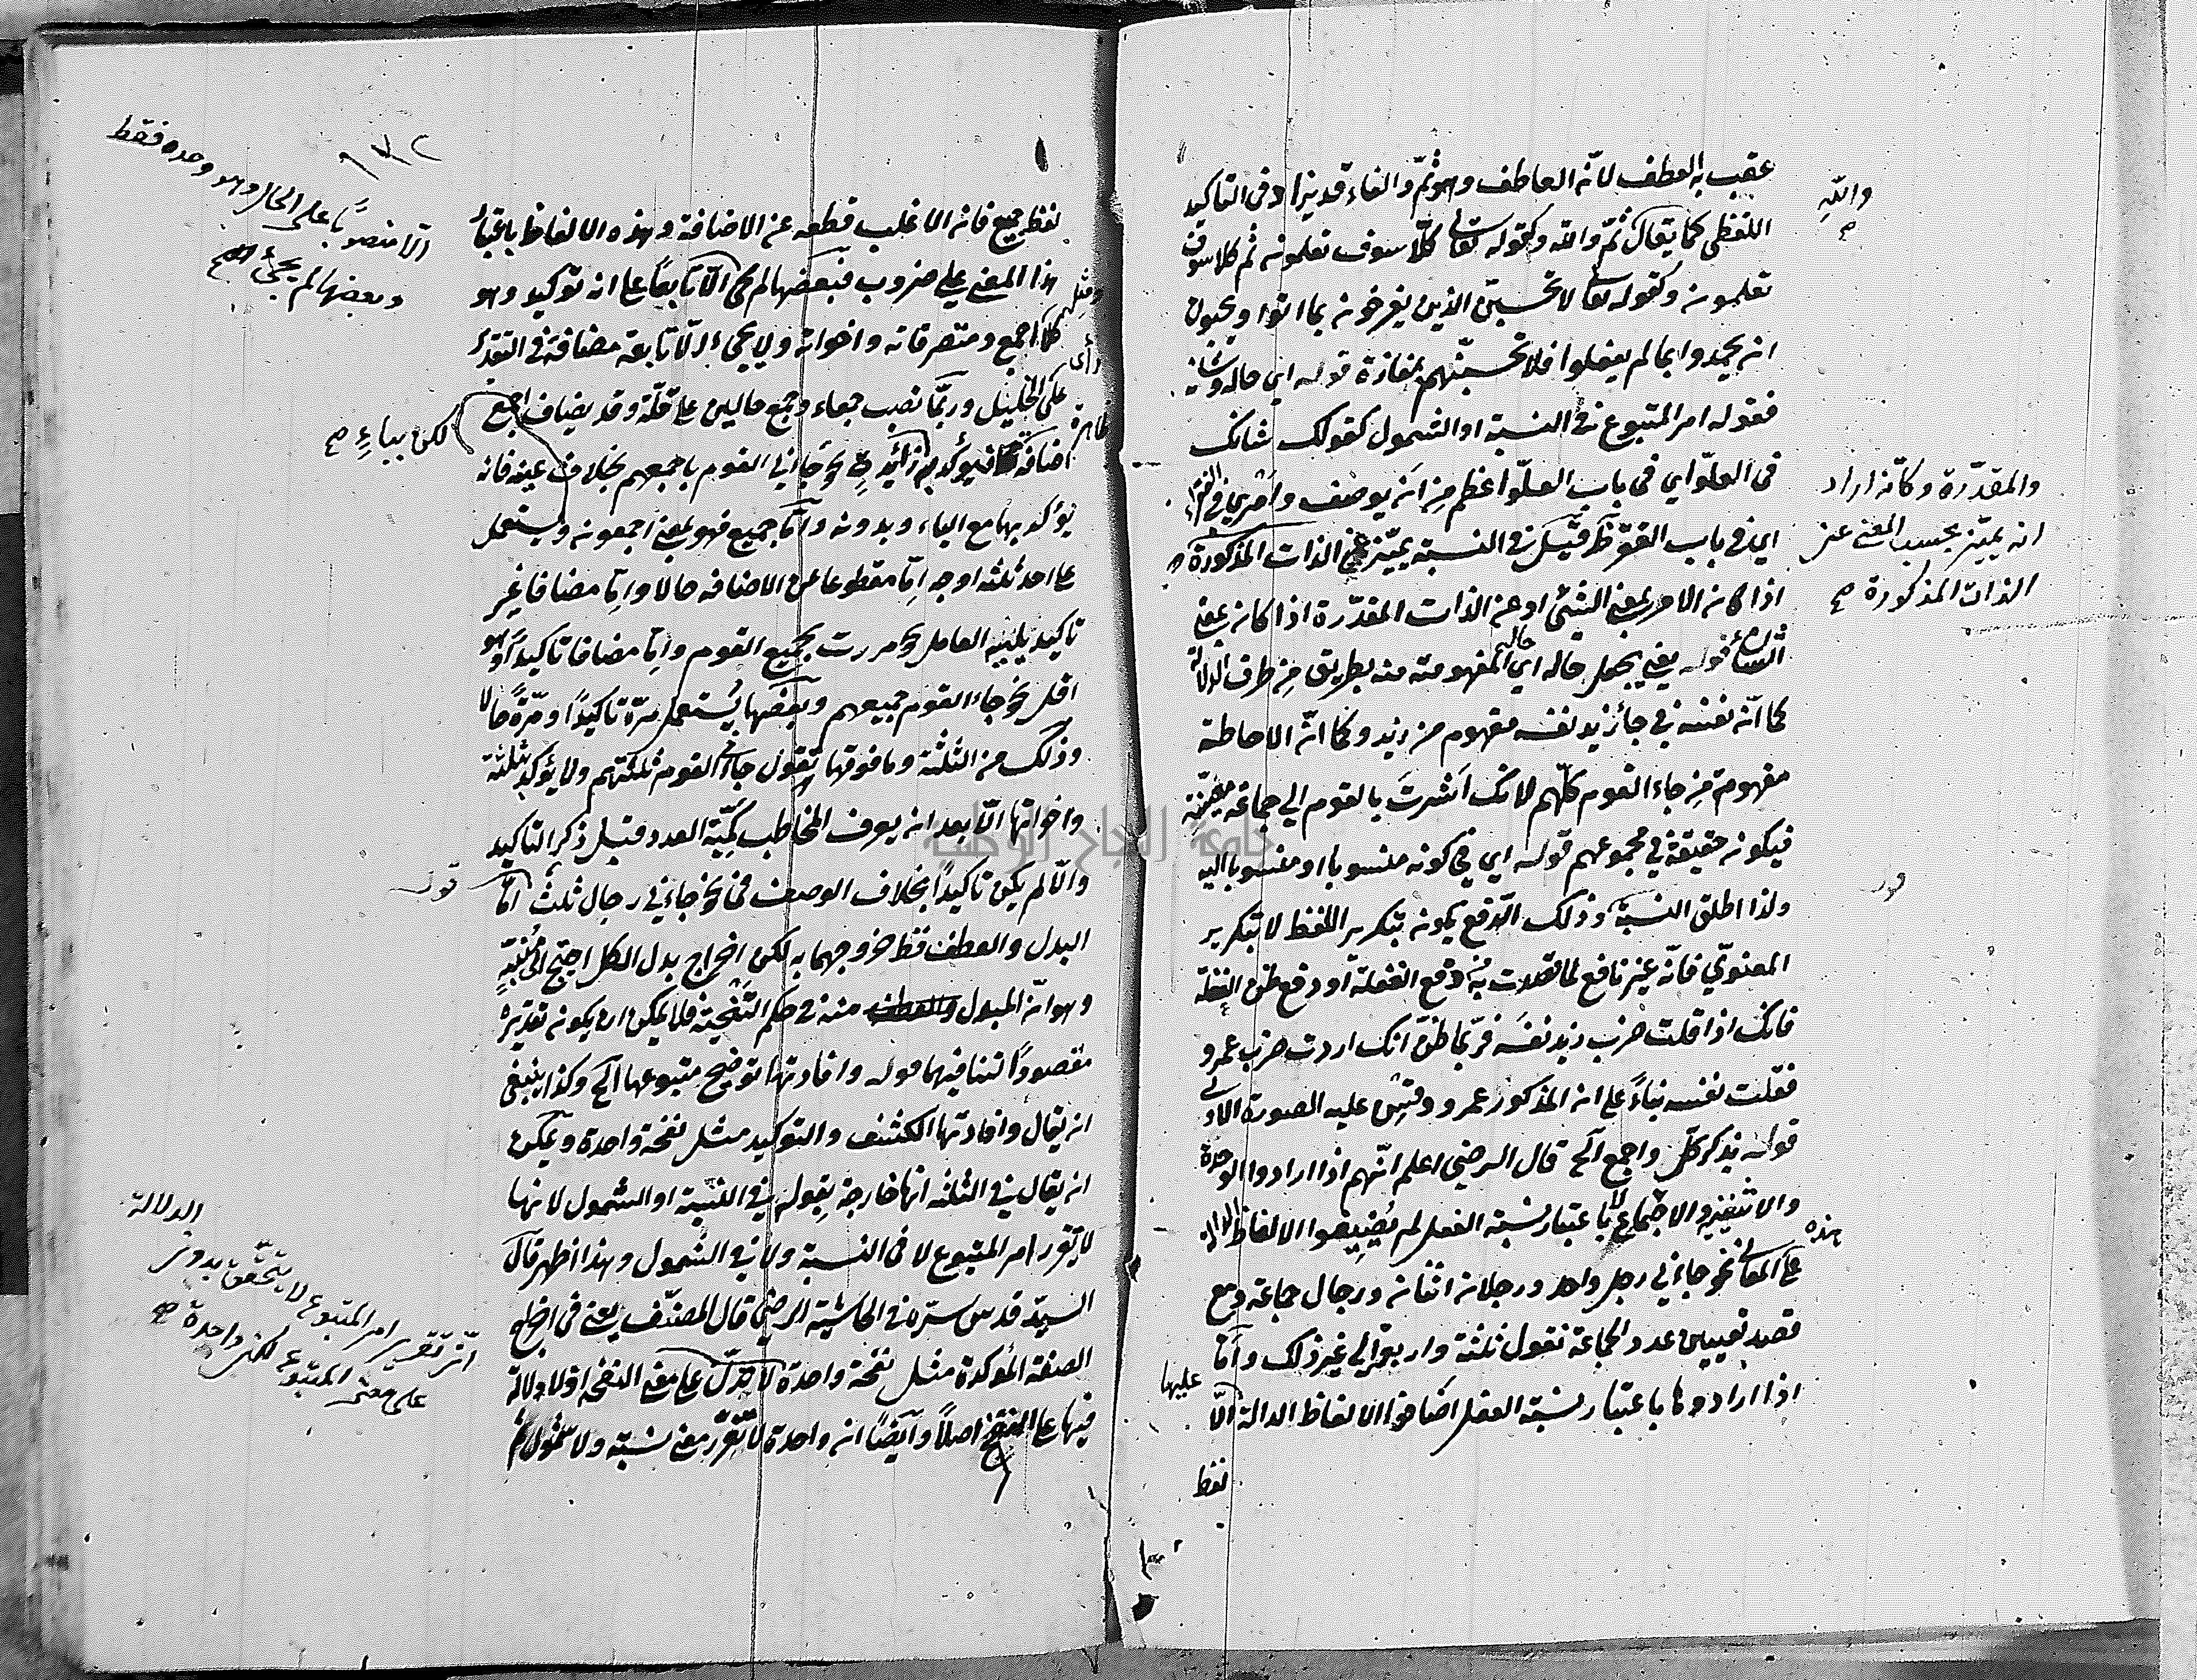 عقب به العطف لانّه العاطف وهو ثمّ والفاء قد يزاد في التاكيد
اللفظي كما يقال ثمّ والله وكقوله تعالى كلّا سوف تعلمون ثم كلا سوف
تعلمون وكقوله تعالى لا تحسبنّ الذين يفرحون بما اتوا ويحبون
ان يحمدوا بما لم يفعلوا فلا تحسبنّهم بمفازة قوله اي حاله وشانه
فقوله امر المتبوع في النسبة او الشمول كقولك شانك
في العلوّ اي في باب العلوّ اعظم من ان يوصف وامري في الفقر
اي في باب الفقر في النسبة يميّز عن الذات المذكورة
اذا كان الامر بمعنى الشئ او عن الذات المقدّرة اذا كان بمعنى
الشان قوله يعني يجعل حاله اي المفهومة منه بطريق من طرق الدلالة
كما انّ نفسه في جاء زيد نفسه مفهوم من زيد وكما انّ الاحاطة
مفهومة من جاء القوم كلّهم لانك اشرت بالقوم الى جماعة معينة
فيكون حقيقة في مجموعهم قوله اي في كونه منسوبا او منسوبا اليه
ولذا اطلق النسبة وذلك الدّفع يكون بتكرير اللفظ لا بتكرير
المعنويّ فانّه غير نافع دفع الغفلة او دفع ظن الغفلة
فانك اذا قلت ضرب زيد نفسه فربّما ظنّ انك اردت ضرب عمرو
فقلت نفسه بناءً على ان المذكور عمرو وقس عليه الصورة الاولى
قوله بذكر كل واجمع الخ قال الرضي اعلم انّهم اذا ارادوا الوحدة
والاثنينية والاجتماع لا باعتبار نسبة الفعل لم يضيفوا الالفاظ الدالة
على المعاني نحو جاءني رجل واحد ورجلان اثنان ورجال جماعة ومع
قصد تعيين عدد الجماعة تقول ثلثة واربعة الى غير ذلك وامّا
اذا ارادوها باعتبار نسبة الفعل اضافوا الالفاظ الدالة الّا
لفظ
والله
صح
والمقدّرة وكانّه اراد
انه يميّز بحسب المعنى عن
الذات المذكورة صح
هذه
عليها
١٧٢
لفظ جميع فان الاغلب قطعه عن الاضافة وهذه الالفاظ باعتبار
هذا المعنى على ضروب فبعضها لم يجئ الّا تابعاً على انه توكيد وهو
كلا اجمع ومتصرفاته واخواته ولا يجئ الّا تابعة مضافة في التقدير
على راي الخليل وربّما نصب جمعاء وجمع حالين على قلّة وقد يضاف اجمع
اضافة ظاهرة فيؤكد به زائدة نحو جاءني القوم باجمعهم بخلاف عينه فانه
يؤكد بها مع الباء وبدونه وامّا جميع فهو بمعنى اجمعون ويستعمل
على احد ثلثة اوجه امّا مقطوعا عن الاضافه حالا وامّا مضافا غير
تاكيد يليه العامل نحو مررت بجميع القوم وامّا مضافا تاكيداً وهو
اقل نحو جاء القوم جميعهم وبعضها يستعمل مرّة تاكيداً ومرّةً حالا
وذلك من الثلثة وما فوقها تقول جاءني القوم ثلثتهم ولا يؤكد بثلثة
واخواتها الّا بعد ان يعرف المخاطب كميّة العدد قبل ذكر التاكيد
والّا لم يكن تاكيداً بخلاف الوصف في نحو جاءني رجال ثلثة امّا
البدل والعطف فظ خروجهما به لكن اخراج بدل الكل احتج الى
وهو انّ المبدل منه في حكم التنحية فلا يمكن ان يكون تقريره
مقصوداً لتنافيهما قوله وافادتها توضيح متبوعها الخ وكذا ينبغي
ان يقال وافادتها الكشف والتوكيد مثل نفخة واحدة ويمكن
ان يقال في الثلثه انها خارجة بقوله في النسبة او الشمول لانها
لا تقرر امر المتبوع لا في النسبة ولا في الشمول وهذا اظهر قال
السيّد قدس سرّه في الحاشية الرضي قال المصنّف يعني في اخراج
الصفة المؤكدة مثل نفخة واحدة لا تدلّ على معنى النفخه اذ لا دلالة
فيها على النفخ اصلاً وايضاً ان واحدة لا تقرّر معنى نسبة ولا شمول
الّا منصوباً على الحال وهو وحده فقط
وبعضها لم يجئ صح
لكن بباءٍ صح
قوله
الدلالة
انّ تقرير امر المتبوع لا يتحقّق بدون
على معنى المتبوع لكن واحدة صح